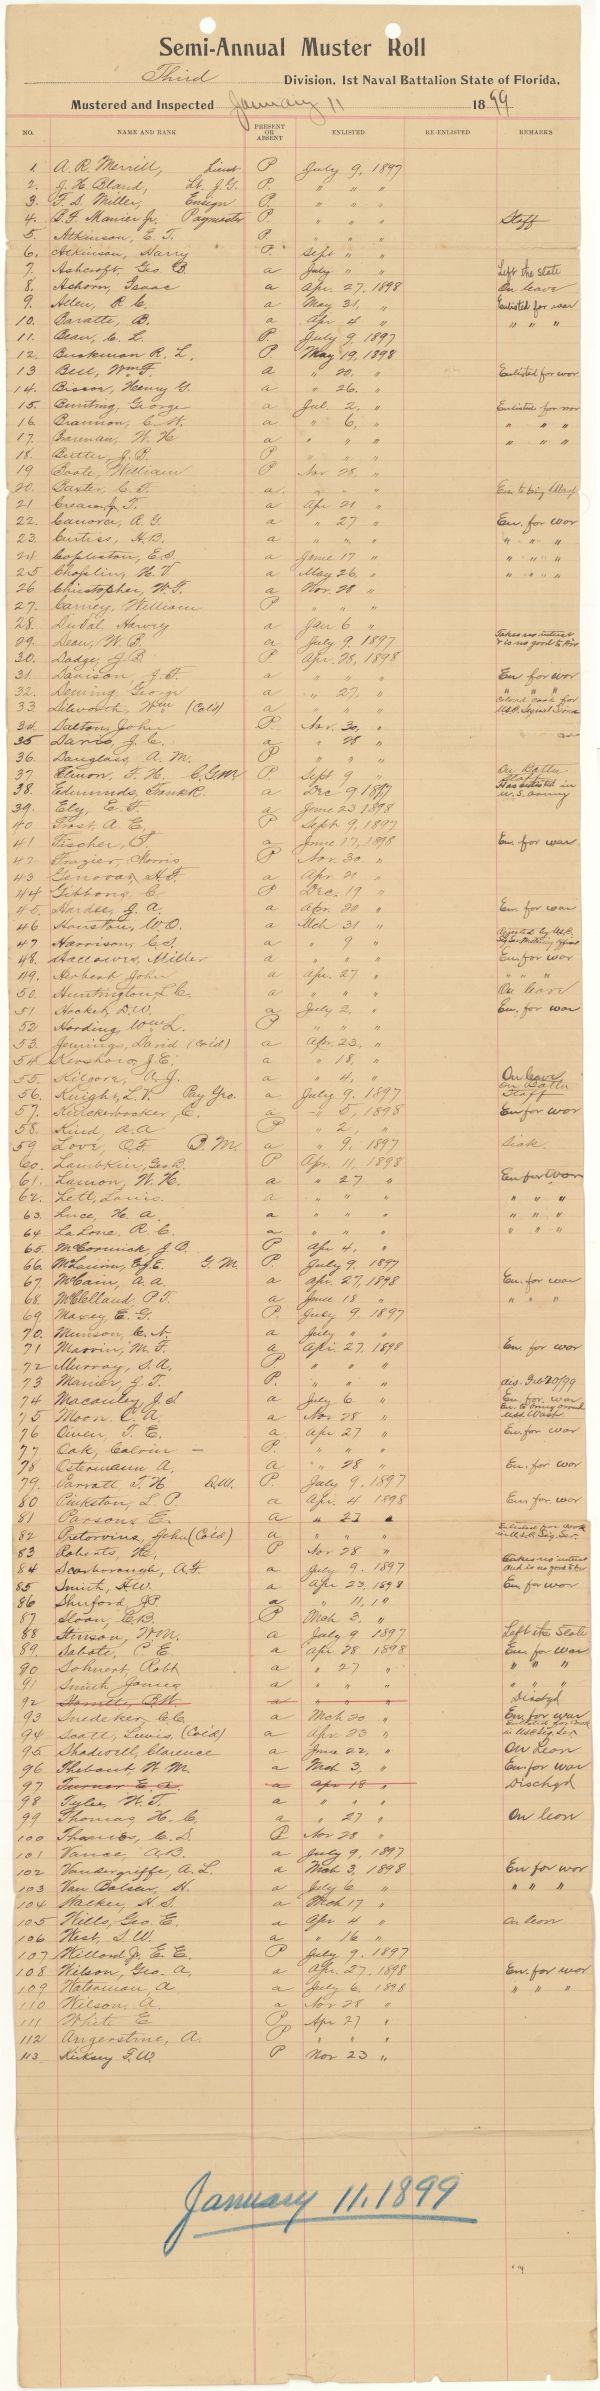 Semi-Annual Muster Roll
Third Division, 1st Naval Battalion State of Florida.
Mustered and Inspected January 11 1899
NO. NAME AND RANK PRESENT OR ABSENT ENLISTED RE-ENLISTED REMARKS
1. A. R. Merrill, Lieut P. July 9, 1897
2. J. H. Bland, Lt. J.G. P. " " "
3. F. S. Miller, Ensign P. " " "
4. B. F. Manier Jr. Paymaster P. " " " Staff
5. Atkinson, E. T. P. " " "
6. Atkinson, Harry P. Sept " "
7. Ashcroft, Geo B. a July " " Left the State
8. Ashorn, Isaac a Apr. 27, 1898 On leave
9. Allen, R. C. a May 31, " Enlisted for war
10. Baratte, B. a Apr 4 " " " "
11. Bean, C. L. P. July 9, 1897
12. Buckman R. L. P. May 19, 1898
13 Bell, Wm F. a " 20, " Enlisted for war
14. Biscoe, Henry G. a " 26, "
15. Bunting, George a Jul. 2, " Enlisted for war
16. Brannon, C. W. a " 6, " " " "
17. Barman, W. H a " " " " " "
18. Butter, J. B. P " " "
19 Boote, William P Nov 28, "
20. Baxter, C. F. a. " " "
21 T. a Apr 21 "
22. Canova, A. G. a " 27 " En. for war
23. Curtiss, H. B. a " " " " " "
24 Coppleston, E. S. a June 17 " " " "
25 Choplin, H. V a May 26, " " " "
26 Christopher, W. F. a Nov. 28 "
27. Carney, William P " " "
28. DuVal Harvey a Jan 6 "
29. Dean, W. B. a July 9, 1897 Takes no interest & is no good to Div
30. Dodge, J. B. P Apr. 28, 1898
31. Davison, J. F. a " " " En for war
32. Deming George a " 27, " " " "
33 Dilworth, Wm (Col'd) a " " "
34 Dalton, John P Nov. 30, "
35 Davis, J. C. a " 28 "
36. Douglass, A. M. P " " "
37 F. H. C.G.M P Sept 9 "
38. Edmunds, Frank R. a Dec 9 1897 Has enlisted in U. S. Army
39. Ely, E. F. a June 23 1898
40 Frost, A. E. P Sept 9, 1897
41 Fischer, a June 17, 1898 En. for war
42 Frazier, Morris P Nov. 30 "
43 Genovar, H. F. a Apr. 21 "
44 Gibbons, C. P Dec. 19 "
45. Hardee, G. A. a Apr. 20 " En. for war
46 Houston, W. O. a Mch 31 "
47 Harrison, C. S. a " 9 "
48. Hallowes, Miller a " " " En. for war
49. Herbert John a Apr. 27 " " " "
50. Huntington, L. C. a " " " On leave
51 Hocket, D. W. a July 2, " En. for war
52 Harding Wm L. P " " "
53. Jennings, David (Col'd) a Apr. 23, "
54 J. E. a " 18, "
55. Kilgore, A. J. a " 4, " On leave
56. Knight, L. V. Pay Yeo. a July 9, 1897 On Battn Staff
57. Knickerbocker, C. a " 5, 1898 En for war
58. Kind, A. A P " 2, "
59 Love, O. F. B. M. a " 9, 1897 Sick
60. Lambkin, Geo R. P Apr. 11, 1898
61. Lamon, W. H. a " 27 " En for war
62. Lett, Louis. a " " " " " "
63. Luce, H. a a " " " " " "
64 LaLone, R. C. a " " " " " "
65. McCormick, J. D. P. Apr 4, "
66. G. M. P. July 9. 1897
67. McCain, A. A. a Apr. 27, 1898 En. for war
68. McClelland, P. T. a June 18 " " " "
69 Maxey E. G. P. July 9. 1897
70. Munson, C. N. a July " "
71 Marvin, M. F. a Apr. 27. 1898 En. for war
72 Murray, S. A. P. " " "
73 Manier, J. T. P. " " " dis. Feb 20/99
74 Macauley, J. S a July 6 " En. for war
75 Moon, C. A. a Nov 28 "
76 Owen, T. E. a Apr 27 " En. for war
77 Oak, Calvin P. " " "
78 Ostermann A. a " 28 " En. for war
79. Parratt, T. H Q.M. P. July 9. 1897
80 Pinkston, L. P. a Apr. 4 1898 En. for war
81 Parsons E. a " 27 "
82 Pretorvins, John (Col'd) a " " "
83 Roberts, H. P Nov 28 "
84 Scarborough, A. F. a July 9. 1897 Takes no interest and is no good to Div
85 Smith, H. W. a Apr 23, 1898 En for war
86 Shuford, J P. a " 11, "
87 Sloan, C. B. P Mch 3, "
88 Stinson, Wm. a July 9 1897 Left the State
89. Sabate, P. E. a Apr 28 1898 En. for war
90 Sohnert, Robt a " 27 " " " "
91 Smith James a " " " " " "
92 B. W. a " " " Dischgd
93 Snedeker, C. C. a Mch 20 " En. for war
94 Scott, Lewis, (Col'd) a Apr 23 "
95 Shadwell, Clarence a June 22, " On leave
96 Thebaut, W. M. a Mch 3, " En. for war
97 Turner E. A. a Apr 18 " Dischgd
98 Tyler, W. T. a " " "
99 Thomas, H. C. a " 27 " On leave
100 Thames, C. L. P Nov 28 "
101 Vance, A. B. a July 9, 1897
102 Vandergriffe, A. L. a Mch 3, 1898 En for war
103 Van Balsen, H. a July 6 " " " "
104 Walker, H. S. a Mch 17 "
105 Wills, Geo E. a Apr 4 " On leave
106 West, S. W. a " 16 "
107 Willard Jr, E. E. P July 9. 1897
108 Wilson, Geo. A. a Apr. 27. 1898 En. for war
109 Waterman, A. a July 6, 1898 " " "
110 Wilson, A. a Nov 28 "
111 White E P Apr 27 "
112 Angerstine, A. P " " "
113 Kirksey F. W. P Nov 23 "
January 11. 1899